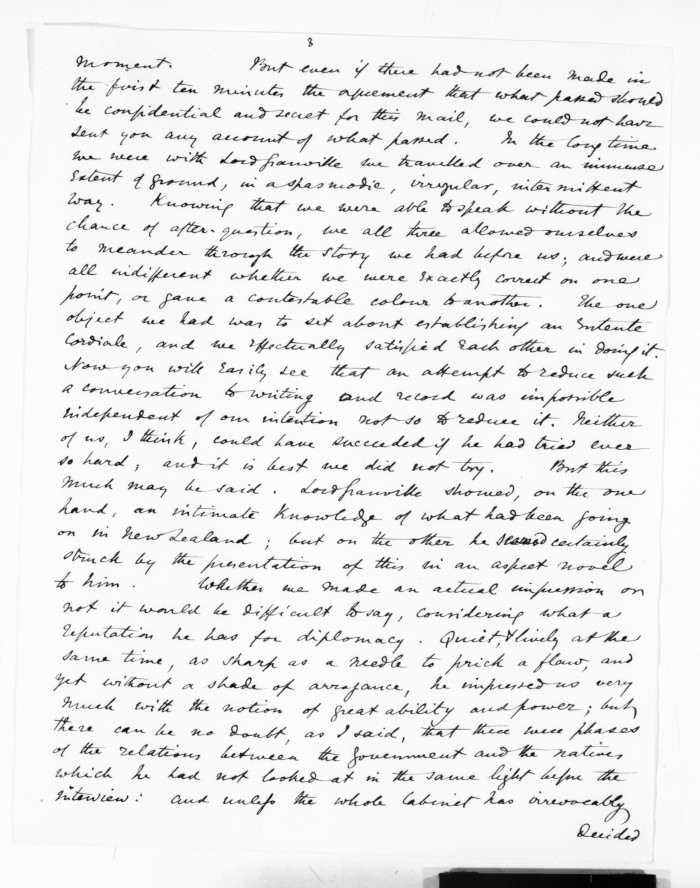 8
moment. But even if there had not been made in
the first ten minutes the agreement that what passed should
be confidential and secret for this mail, we could not have
sent you any account of what passed. In the long time
we were with Lord Granville we travelled over an immense
extent of ground, in a spasmodic, irregular, intermittent
way. Knowing that we were able to speak without the
chance of after-question, we all three allowed ourselves
to meander through the story we had before us; and were
all indifferent whether we were exactly correct on one
point, or gave a contestable colour to another. The one
object we had was to set about establishing an Entente
Cordiale, and we effectually satisfied each other in doing it.
Now you will easily see that an attempt to reduce such
a conversation to writing and record was impossible
independent of our intention not so to reduce it. Neither
of us, I think, could have succeeded if he had tried ever
so hard; and it is best we did not try. But this
much may be said. Lord Granville showed, on the one
hand, an intimate knowledge of what had been going
on in New Zealand; but on the other he certainly
struck by the presentation of this in an aspect novel
to him. Whether we made an actual impression or
not it would be difficult to say, considering what a
reputation he has for diplomacy. Quiet, & lively at the
same time, as sharp as a needle to prick a flaw, and
yet without a shade of arrogance, he impressed us very
much with the notion of great ability and power; but
there can be no doubt, as I said, that there were phases
of the relations between the Government and the natives
which he had not looked at in the same light before the
interview: and unless the whole Cabinet has irrevocably
decided